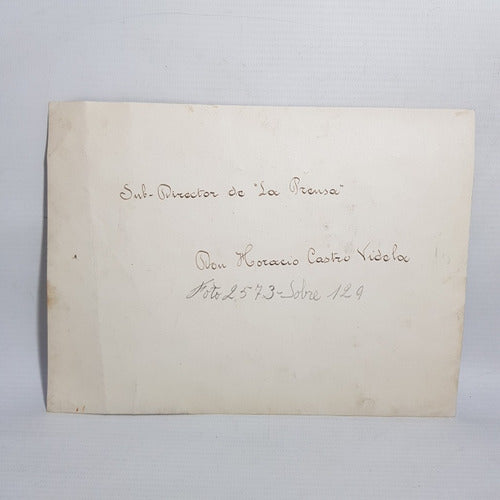 Sub-Director de "La Prensa"
Don Horacio Castro Videla
Foto 2573-Sobre 129